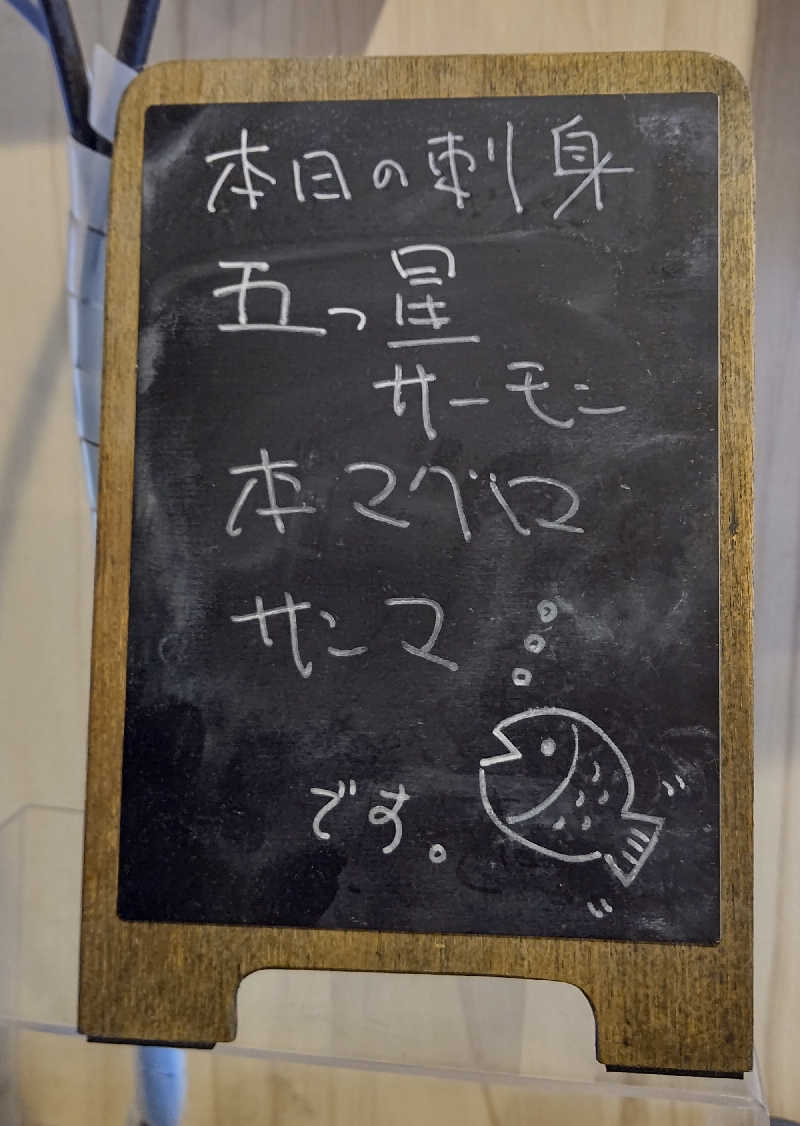 本日の刺身
五つ星
サーモン
本マグロ
サンマ
です。